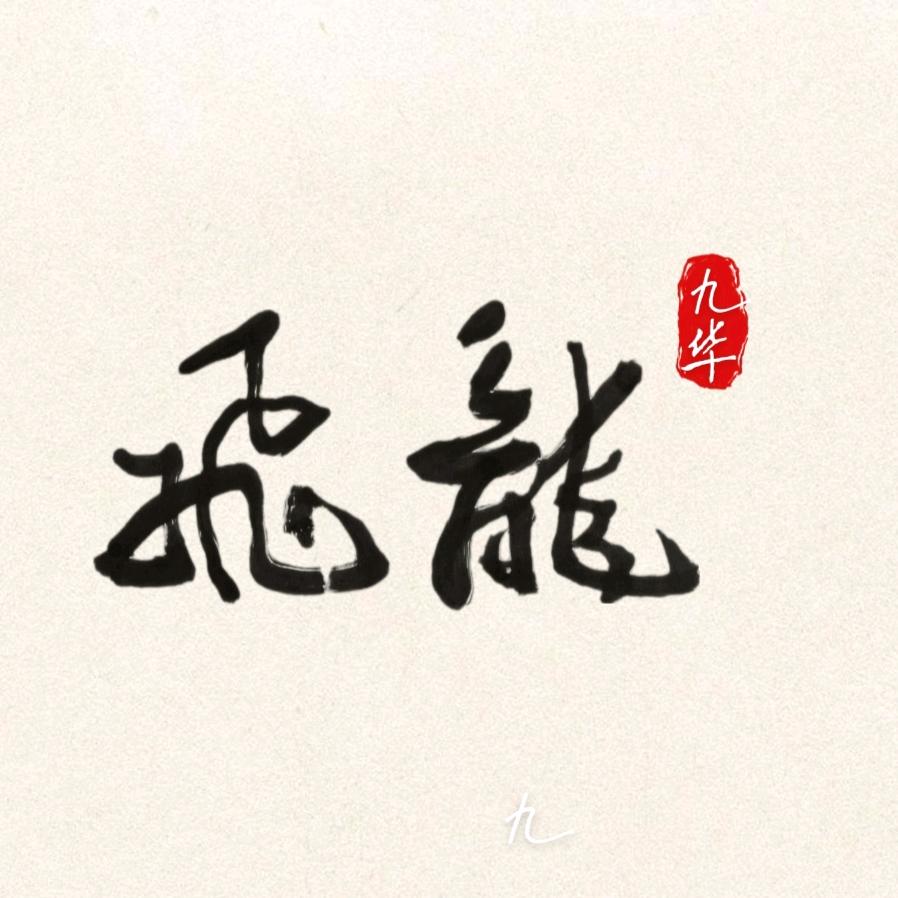 飛龍
九华
九